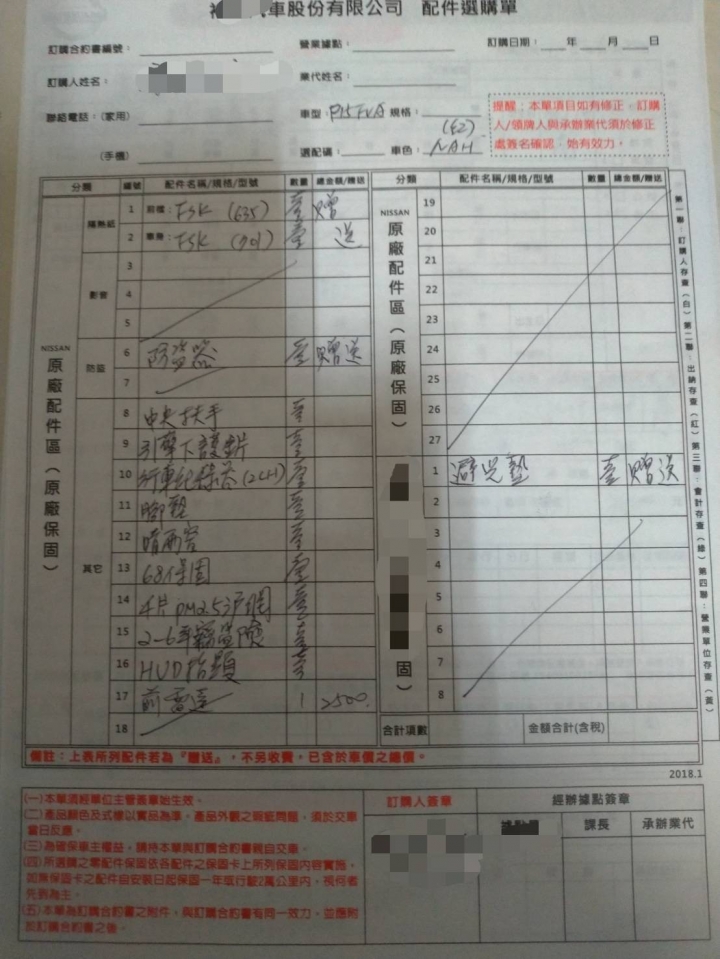 汽車股份有限公司 配件選購單
訂購合約書編號： 營業據點： 訂購日期： 年 月 日
訂購人姓名： 業代姓名：
聯絡電話：(家用) 車型： P15FVA 規格：
(E2)
(手機) 選配碼： 車色： NAH
提醒：本單項目如有修正，訂購
人/領牌人與承辦業代須於修正
處簽名確認，始有效力。
分類 編號 配件名稱/規格/型號 數量 總金額/贈送
NISSAN 原廠配件區（原廠保固）
隔熱紙
1 前檔：FSK (635) 壹 贈
2 車身：FSK (901) 壹 送
影音
3
4
5
防盜
6 防盜器 壹 贈送
7
其它
8 中央扶手 壹
9 引擎下護板 壹
10 行車紀錄器(2CH) 壹
11 腳墊 壹
12 晴雨窗 壹
13 68保固 壹
14 4片PM2.5沪網 壹
15 2-6年竊盜險 壹
16 HUD抬頭 壹
17 前雷達 1 2500
18
分類 配件名稱/規格/型號 數量 總金額/贈送
NISSAN 原廠配件區（原廠保固）
19
20
21
22
23
24
25
26
27
固）
1 避光墊 壹 贈送
2
3
4
5
6
7
8
合計項數 金額合計(含稅)
第一聯：訂購人存查（白）第二聯：出納存查（紅）第三聯：會計存查（綠）第四聯：營業單位存查（黃）
備註：上表所列配件若為『贈送』，不另收費，已含於車價之總價。
2018.1
(一)本單須經單位主管簽章始生效。
(二)產品顏色及式樣以實品為準。產品外觀之瑕疵問題，須於交車
當日反應。
(三)為確保車主權益，請持本單與訂購合約書親自交車。
(四)所選購之零配件保固依各配件之保固卡上所列保固內容實施。
如無保固卡之配件自安裝日起保固一年或行駛2萬公里內，視何者
先到為主。
(五)本單為訂購合約書之附件，與訂購合約書有同一效力，並應附
於訂購合約書之後。
訂購人簽章 經辦據點簽章
課長 承辦業代